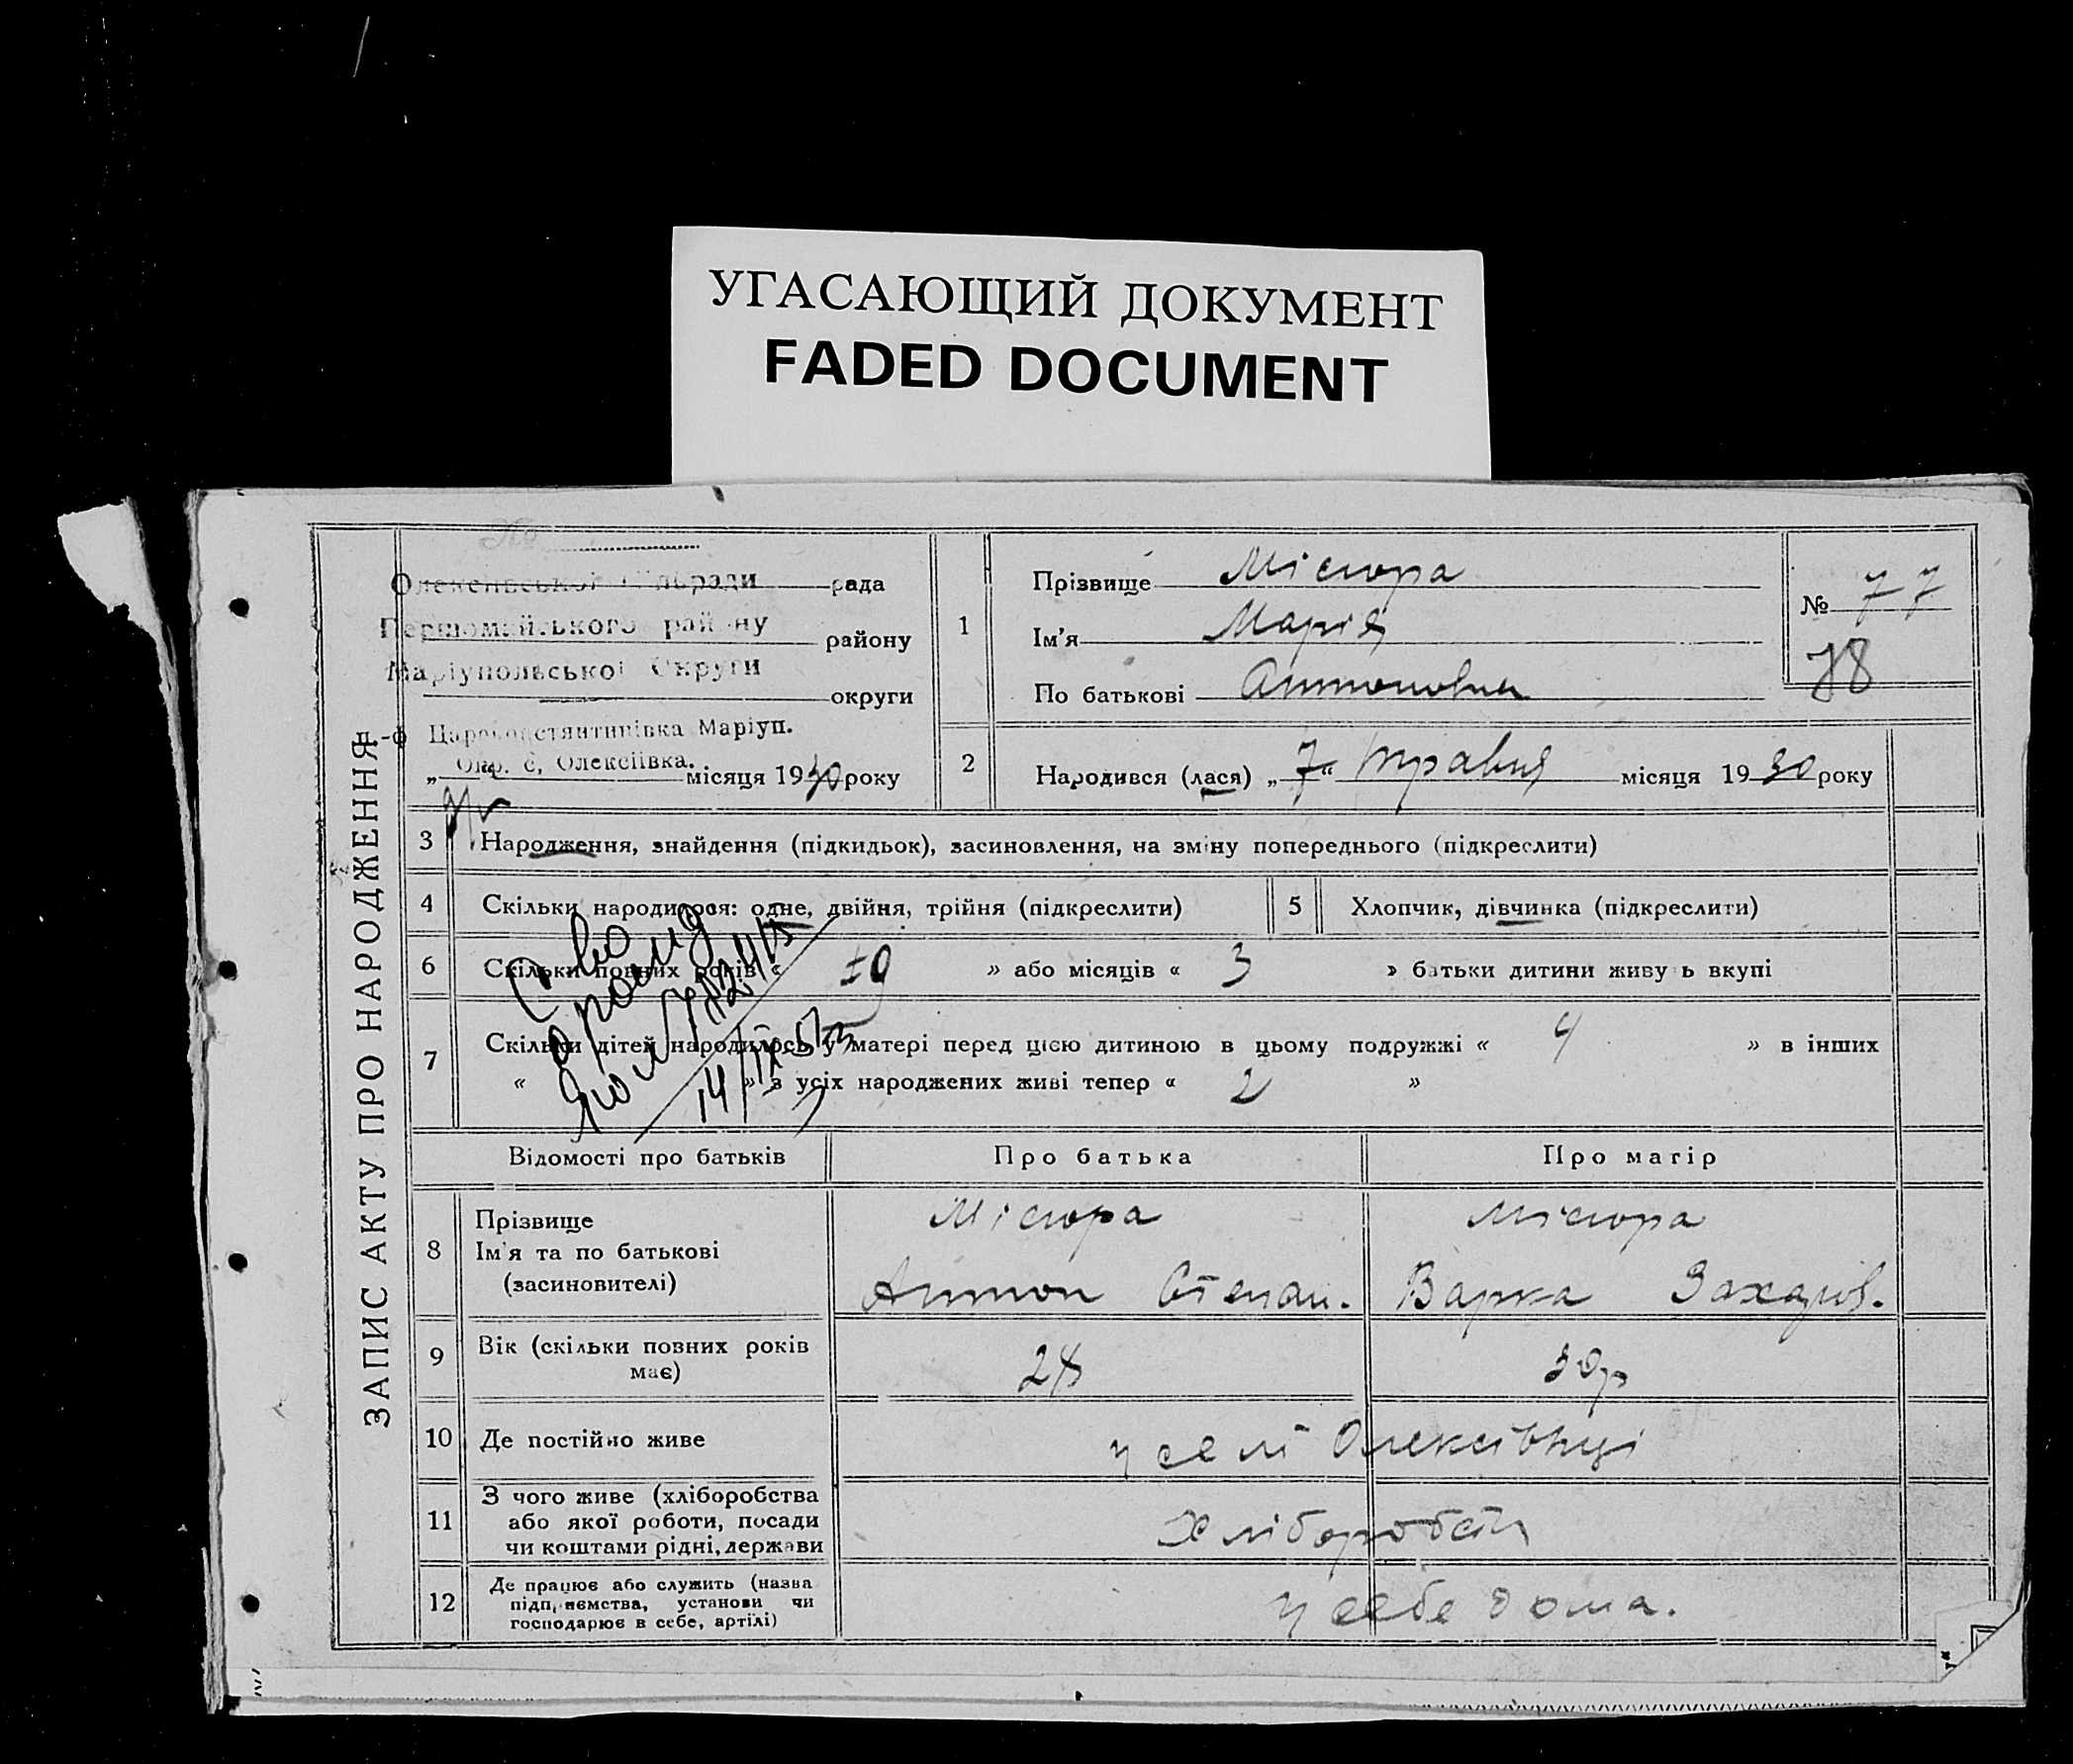 УГАСАЮЩИЙ ДОКУМЕНТ
FADED DOCUMENT
ЗАПИС АКТУ ПРО НАРОДЖЕННЯ
№
рада
Першомайського району району
Маріупольської Округи округи
п.-ф Царе Маріуп.
Окр. с. Олексіївка.
„ “ місяця 1930 року
1
Прізвище Місюра
Ім’я Марія
По батькові Антоновна
№ 77
78
2
Народився (лася) „7“ травня місяця 1930 року
3 Народження, знайдення (підкидьок), засиновлення, на зміну попереднього (підкреслити)
4 Скільки народилося: одне, двійня, трійня (підкреслити)
5 Хлопчик, дівчинка (підкреслити)
6 Скільки повних років « » або місяців « 3 » батьки дитини живуть вкупі
7 Скільки дітей народилось у матері перед цією дитиною в цьому подружжі « 4 » в інших
« » з усіх народжених живі тепер « 2 »
Відомості про батьків Про батька Про матір
8 Прізвище Місюра Місюра
Ім’я та по батькові
(засиновителі) Антон Степан. Варка Захаров.
9 Вік (скільки повних років
має) 28 30р
10 Де постійно живе у селі Олексівці
11 З чого живе (хліборобства
або якої роботи, посади
чи коштами рідні, держави
Хліборобств
12 Де працює або служить (назва
підприємства, установи чи
господарює в себе, артілі)
у себе дома.